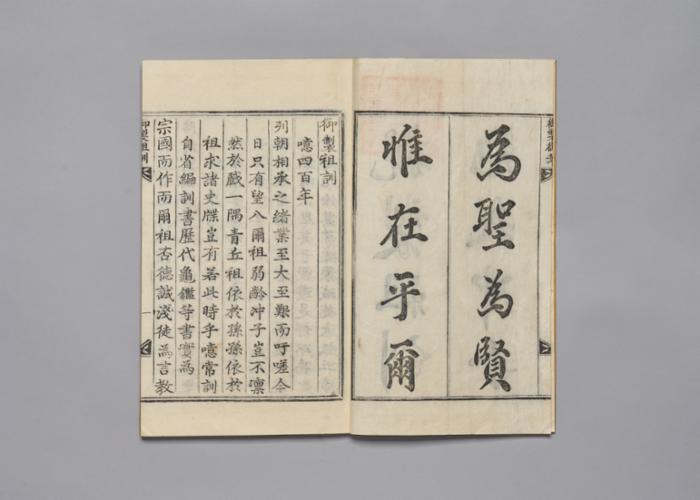 為聖為賢
惟在乎爾
御製祖訓
噫四百年
列朝相承之緒業至大至艱而吁嗟今
日只有望八爾祖弱齡冲子豈不凛
然於戲一隅青丘祖依於孫孫依於
祖求諸史牒豈有若此時乎噫常訓
自省編訓書歷代龜鑑等書實為
宗國而作而爾祖否德誠淺徒為言教
御製祖訓
一